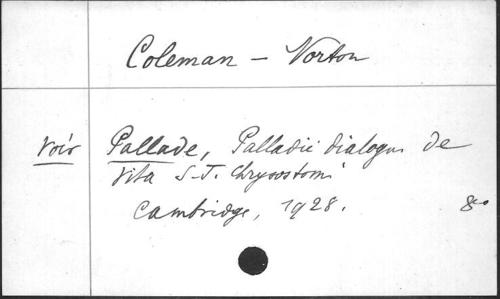 Coleman - Norton
Voir Pallade, Palladii dialogus de
Vita S.J. Chrysostomi
Cambridge, 1928. 8º